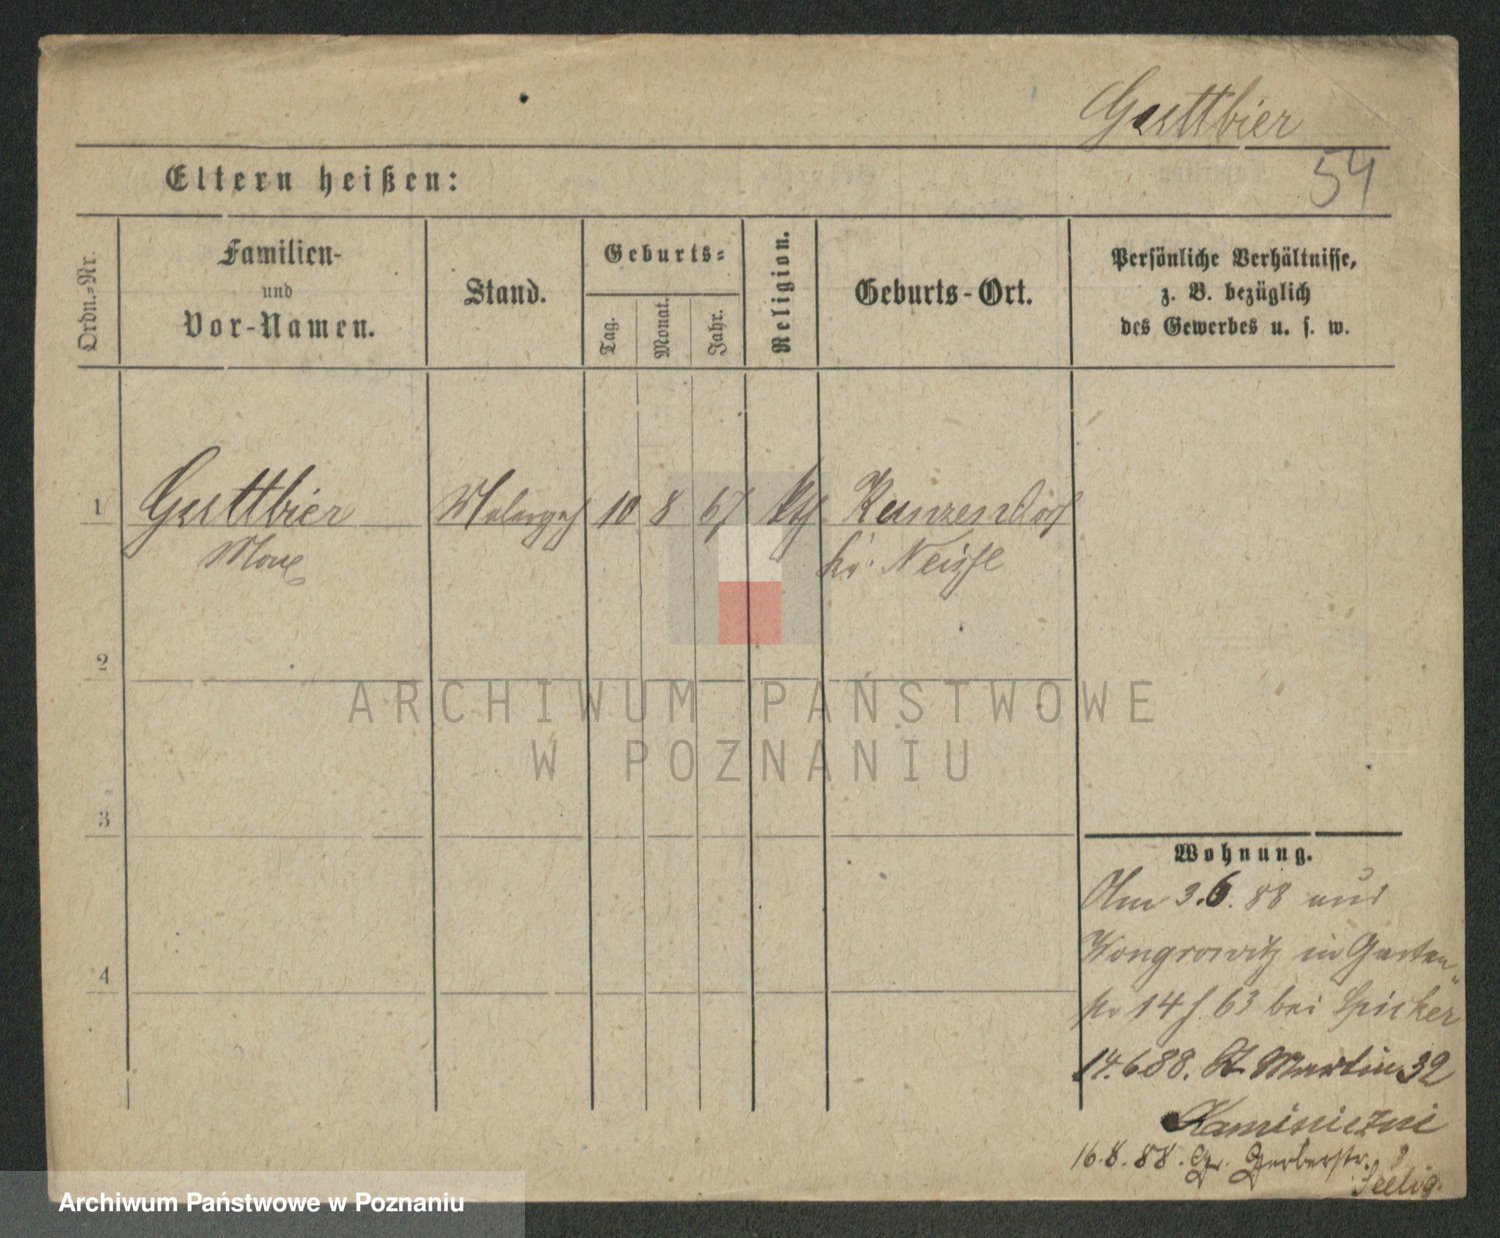 Guttbier
54
Eltern heißen:
Ordn.-Nr.
Familien-
und
Vor-Namen.
Stand.
Geburts-
Tag.
Monat.
Jahr.
Religion.
Geburts-Ort.
Persönliche Verhältnisse,
z. B. bezüglich
des Gewerbes u. s. w.
1 Guttbier Malergeh 10 8 67 kth Kunzendorf
Max kr. Neisse
2
ARCHIWUM PAŃSTWOWE
W POZNANIU
3
Wohnung.
3.6.88 aus
4
Wongrowitz in Garten-
str 14 b. 63 bei Spicker
14.6.88. St Martin 32
Kaminiczni
16.8.88. Gr. Gerberstr. 8
Seelig.
Archiwum Państwowe w Poznaniu